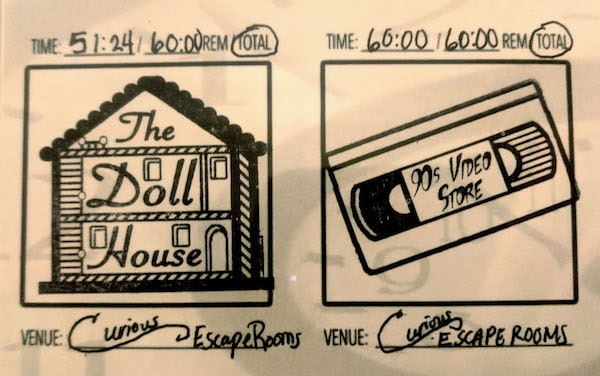 TIME: 51:24 / 60:00 REM TOTAL
The
Doll
House
VENUE: Curious Escape Rooms
TIME: 60:00 / 60:00 REM TOTAL
90s VIDEO
STORE
VENUE: Curious ESCAPE ROOMS